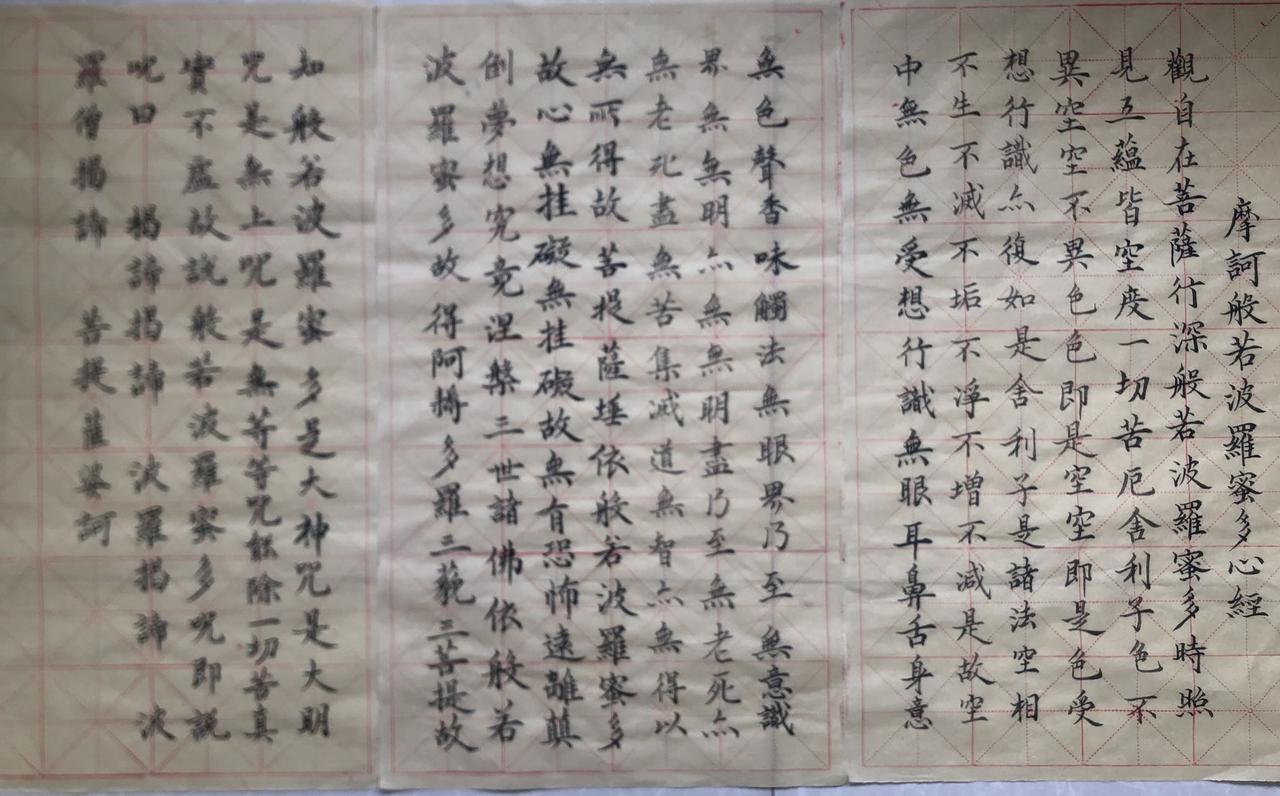 摩訶般若波羅蜜多心經
觀自在菩薩行深般若波羅蜜多時照
見五蘊皆空度一切苦厄舍利子色不
異空空不異色色即是空空即是色受
想行識亦復如是舍利子是諸法空相
不生不滅不垢不淨不增不減是故空
中無色無受想行識無眼耳鼻舌身意
無色聲香味觸法無眼界乃至無意識
界無無明亦無無明盡乃至無老死亦
無老死盡無苦集滅道無智亦無得以
無所得故菩提薩埵依般若波羅蜜多
故心無挂礙無挂礙故無有恐怖遠離顛
倒夢想究竟涅槃三世諸佛依般若
波羅蜜多故得阿耨多羅三藐三菩提故
知般若波羅蜜多是大神咒是大明
咒是無上呪是無等等咒能除一切苦真
實不虛故説般若波羅蜜多呪即説
呪曰 揭諦揭諦 波羅揭諦 波
羅僧揭諦 菩提薩婆訶